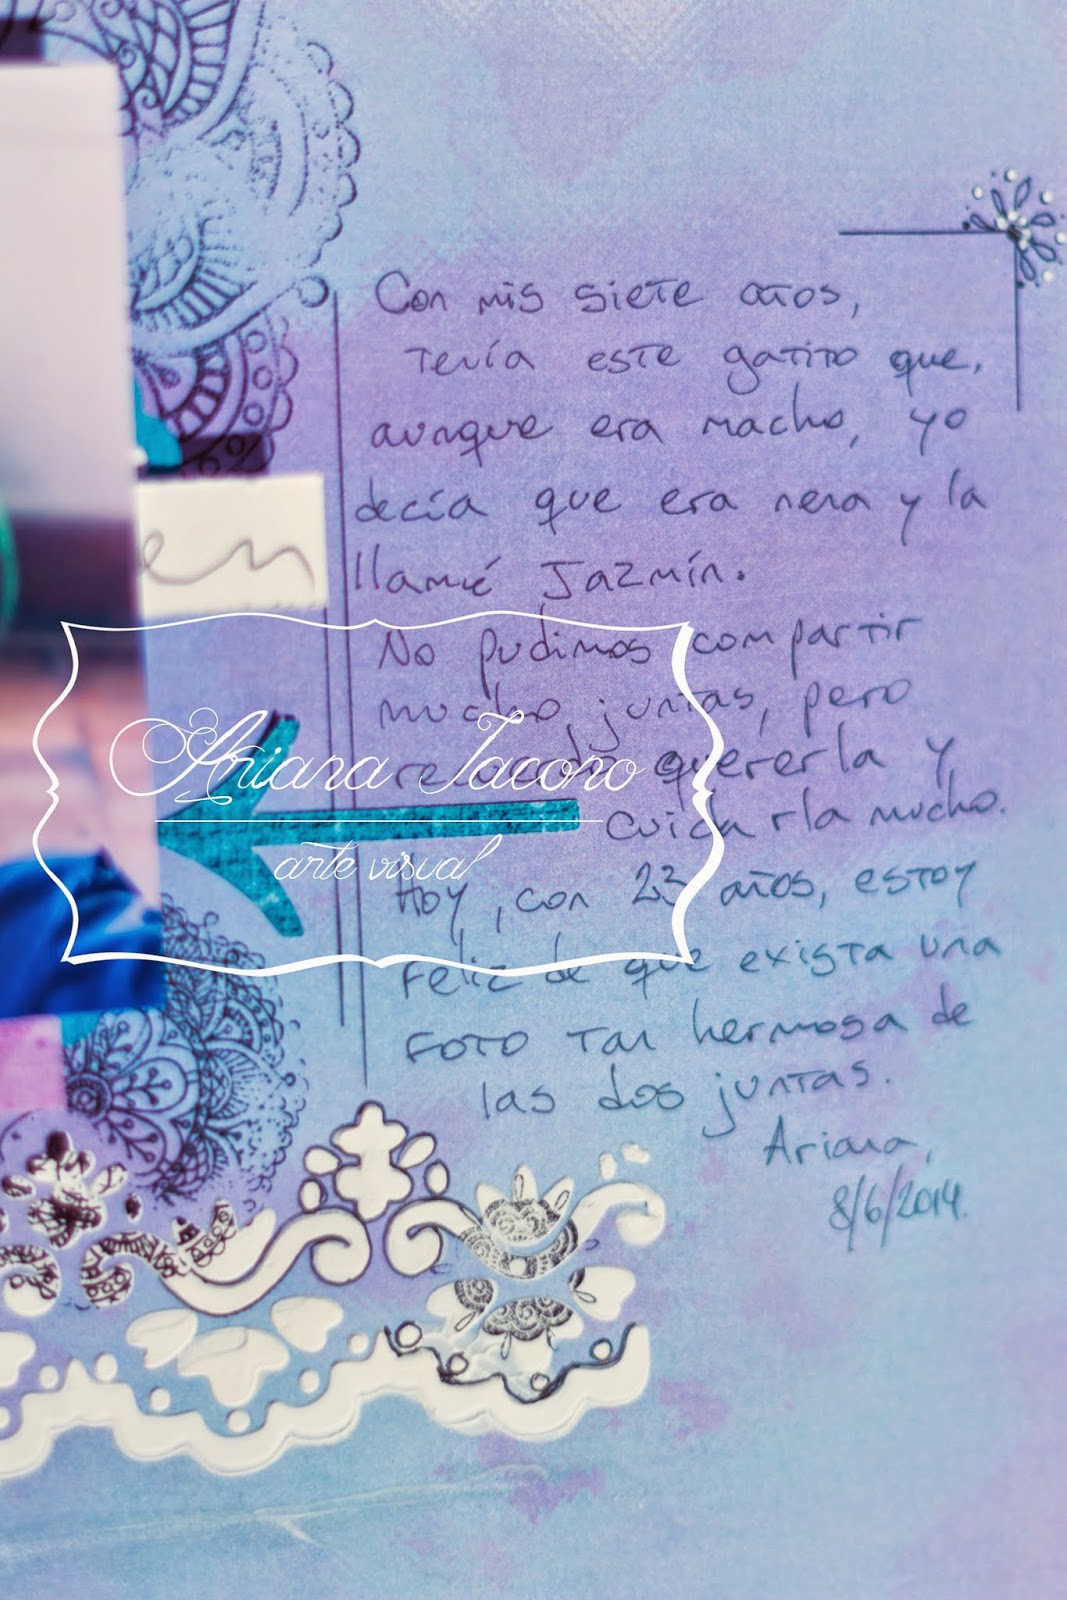 Con mis siete años,
tenía este gatito que,
aunque era macho, yo
decía que era nena y la
llamé Jazmín.
No pudimos compartir
mucho juntas, pero
quererla y
cuidarla mucho.
Hoy, con 23 años, estoy
feliz de que exista una
foto tan hermosa de
las dos juntas.
Ariana,
8/6/2014.
en
Ariana Iacono
arte visual